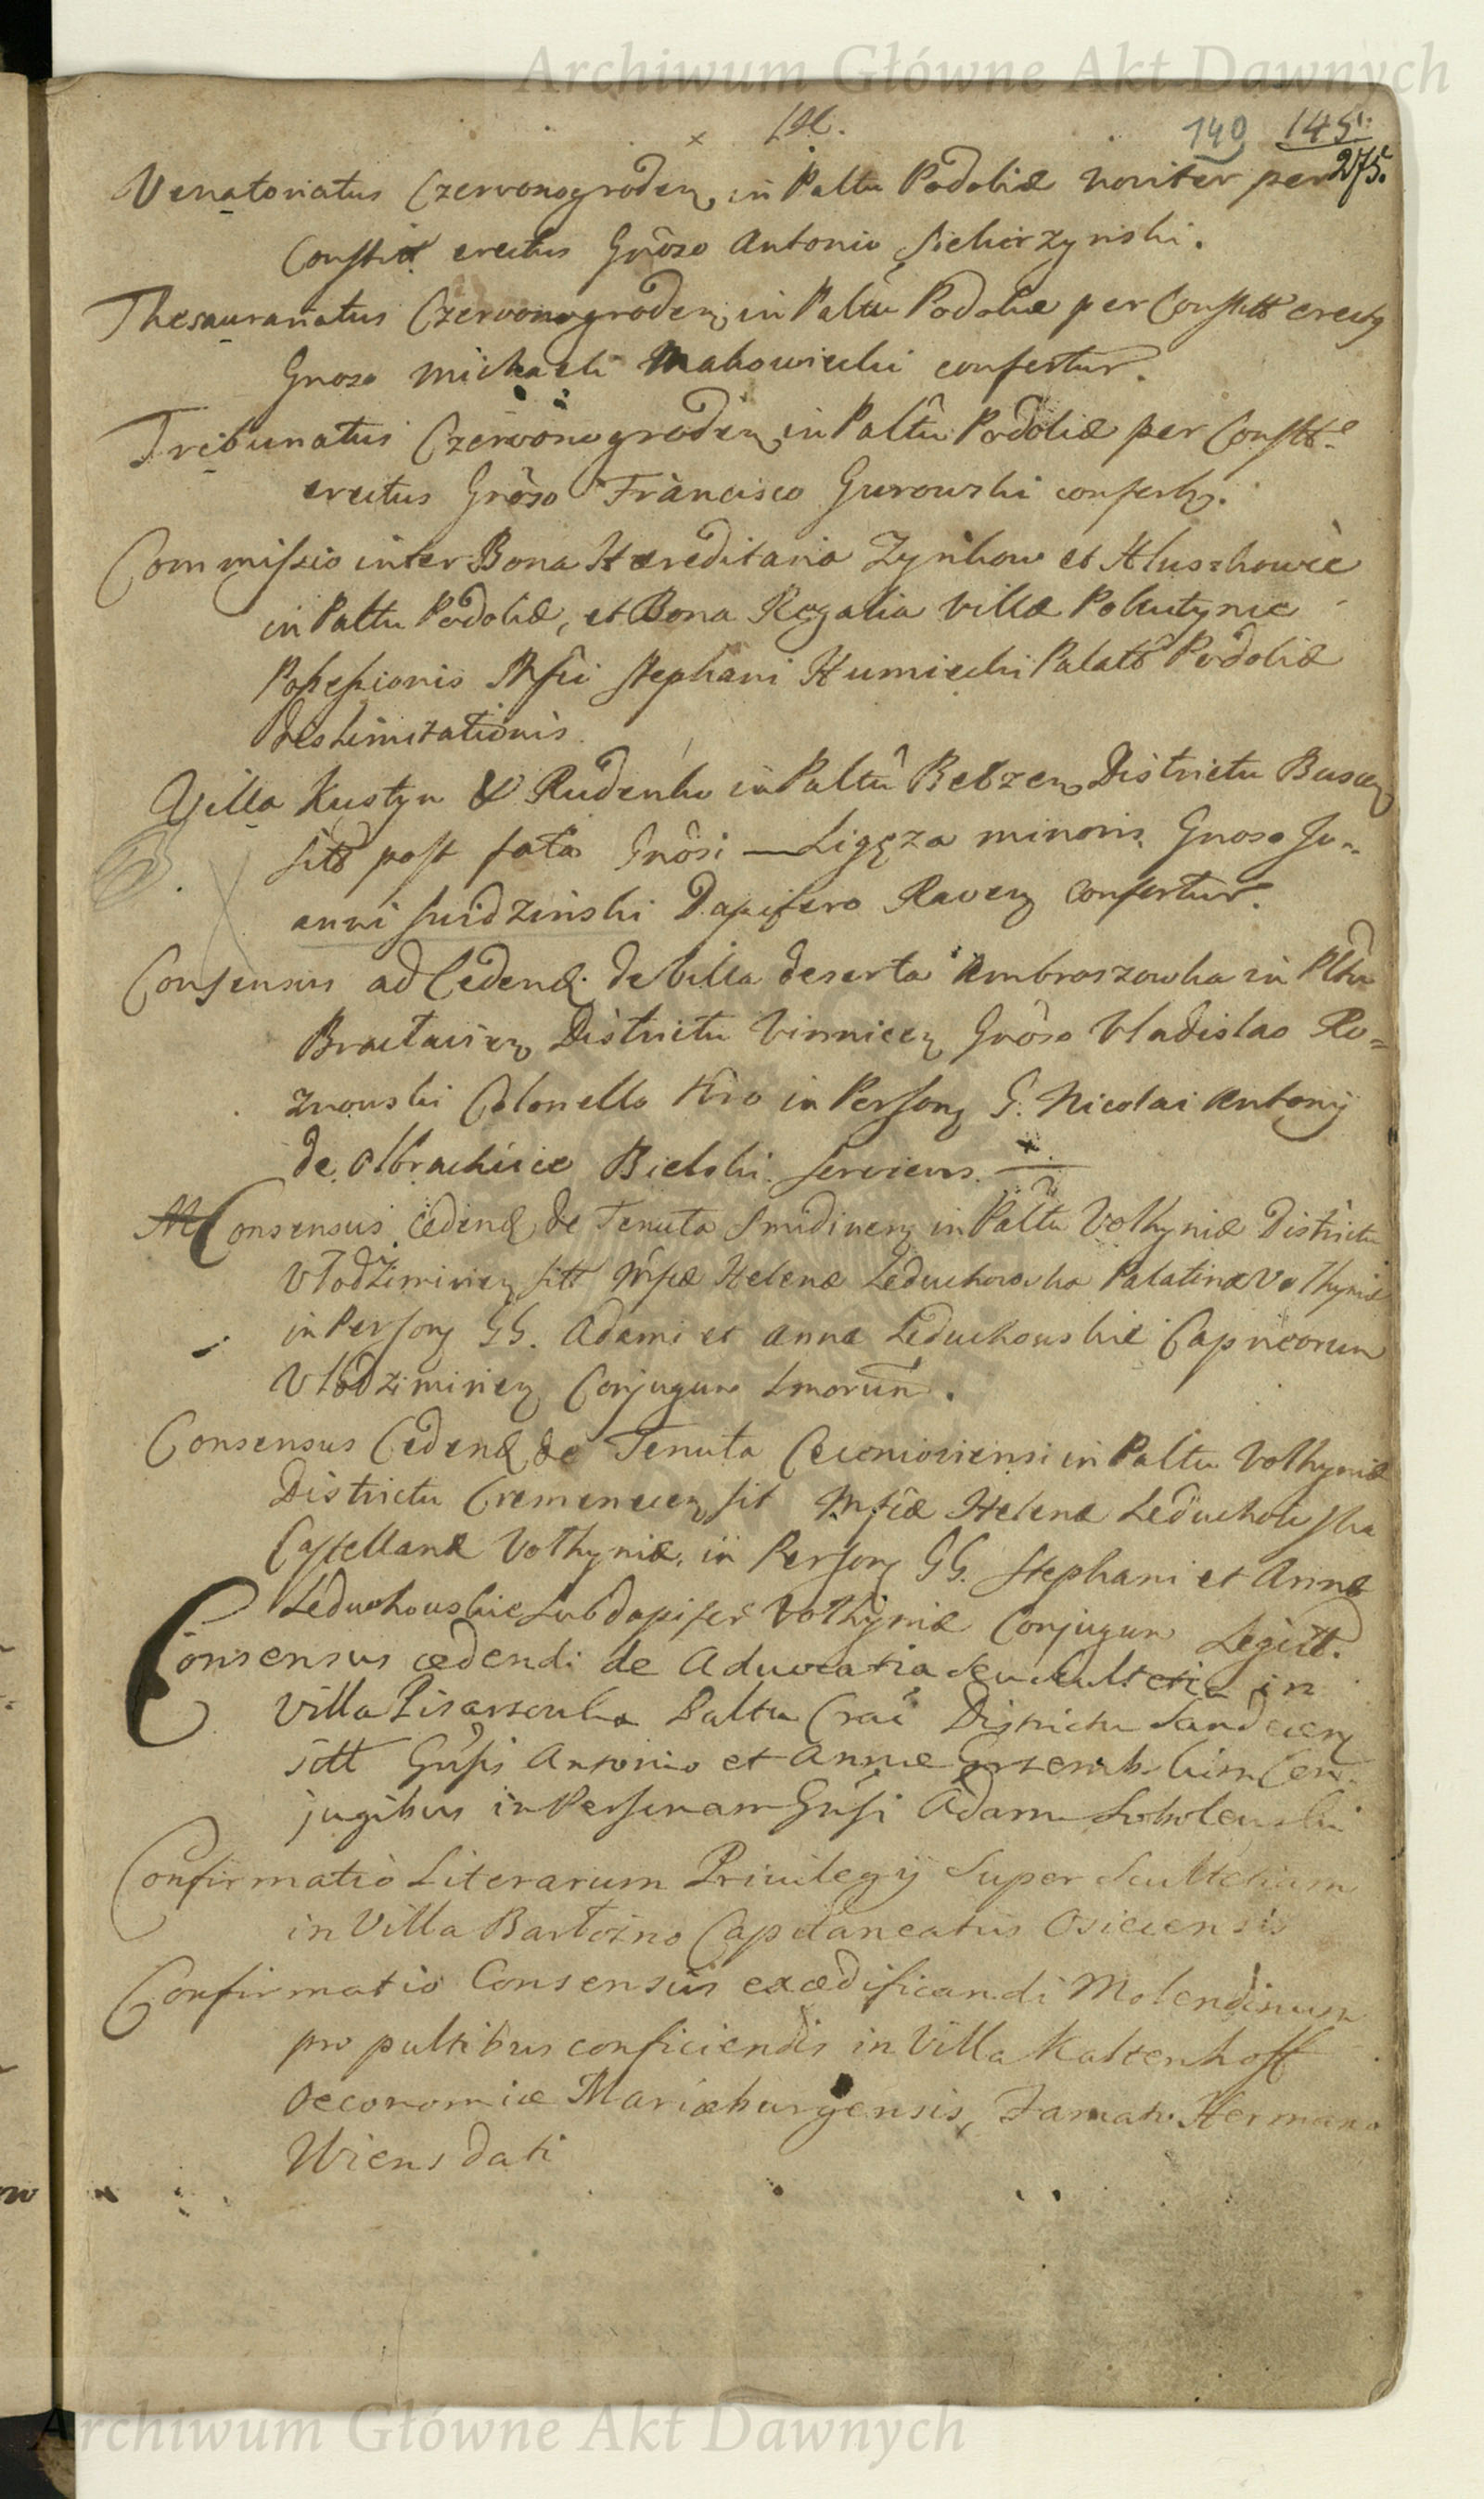 Archiwum Główne Akt Dawnych
140 145
275.
Venatoriatus Czervonogroden in Paltu Podoliæ noviter per
Constit erectus Gnoso Antonio Siekierzynski.
Thesaurariatus Czervonogroden in Paltu Podoliæ per Constitt erectg
Gnoso Michaeli Makowiecki confertur.
Tribunatus Czervonogroden in Paltu Podoliæ per Constt
erectus Gnoso Francisco Gurowski confertg.
Commissio inter Bona Hæreditaria Zynkow et
in Paltu Podoliæ, et Bona Regalia Villæ Pokutynce
Possessionis Mfci Stephani Humiecki Palatt Podoliæ
dislimitationis
Villa Kustyn & Rudenko in Paltu Belzen Districtu Buscen
sitt post fata Gnosi — Ligęza minoris Gnoso Jo-
anni Swidzinski Dapifero Raven confertur.
Consensus ad Cedend de Villa deserta Ambroszowka in Pltu
Braclavien Districtu Vinnicen Gnoso Vladislao Ro=
znowski Colonello in Person G. Nicolai Antonij
de Olbrachcice Bielski serviens.
Consensus cedend de Tenuta Smidinen in Paltu Volhyniæ Districtu
Vlodzimirien sitt Mfcæ Helenæ Leduchowska Palatinæ Volhyniæ
in Person GG. Adami et Annæ Leduchowskie Capneorum
Vlodzimirien Conjugum
Consensus Cedend de Tenuta in Paltu Volhyniæ
Districtu Cremenecen sit Mfcæ Helenæ Leduchowska
Castellanæ Volhyniæ, in Person GG. Stephani et Annæ
Leduchouskie Subdapifer Volhyniæ Conjugum Legitt.
Consensus cedendi de Advocatia seu Scultetia in
Villa Pisarzowka Paltu Crac Districtu Sandecen
sitt Gnsis Antonio et Annæ Con-
jugibus in Personam Gnsi Adam Sobolewski
Confirmatio Literarum Privilegij Super Scultetiam
in Villa Bartozno Capitaneatus Osiecensis
Confirmatio Consensus exædificandi Molendinum
pro pultibus conficiendis in Villa Kaltenhoff
Oeconomiæ Mariæburgensis, Famato Hermano
Wiens dati
Archiwum Główne Akt Dawnych